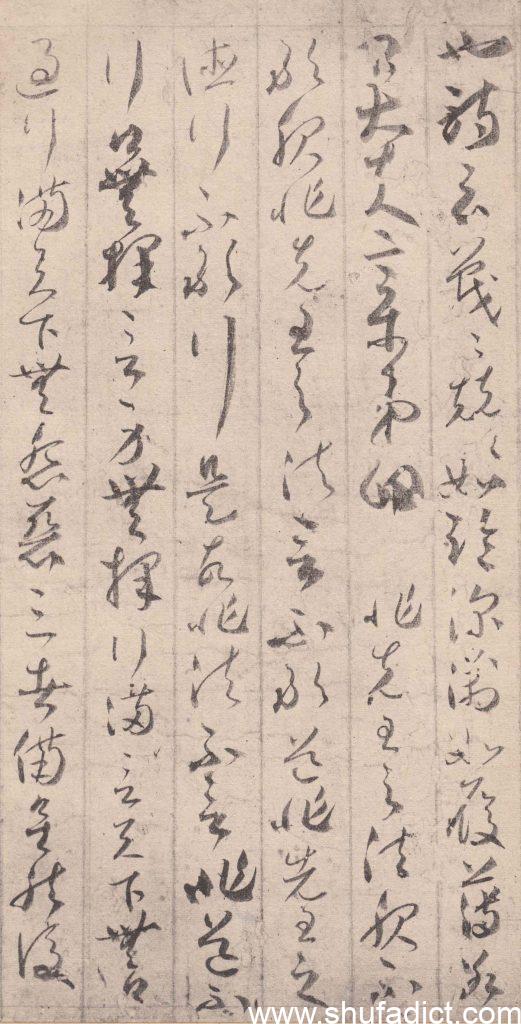 也詩云戰〻兢〻如臨深淵如履薄冰
卿大夫章第四 非先王之法服不
敢服非先王之法言不敢道非先王之
德行不敢行是故非法不言非道不
行口無擇言身無擇行滿言天下無口
過行滿天下無怨惡三者備矣然後
www.shufadict.com